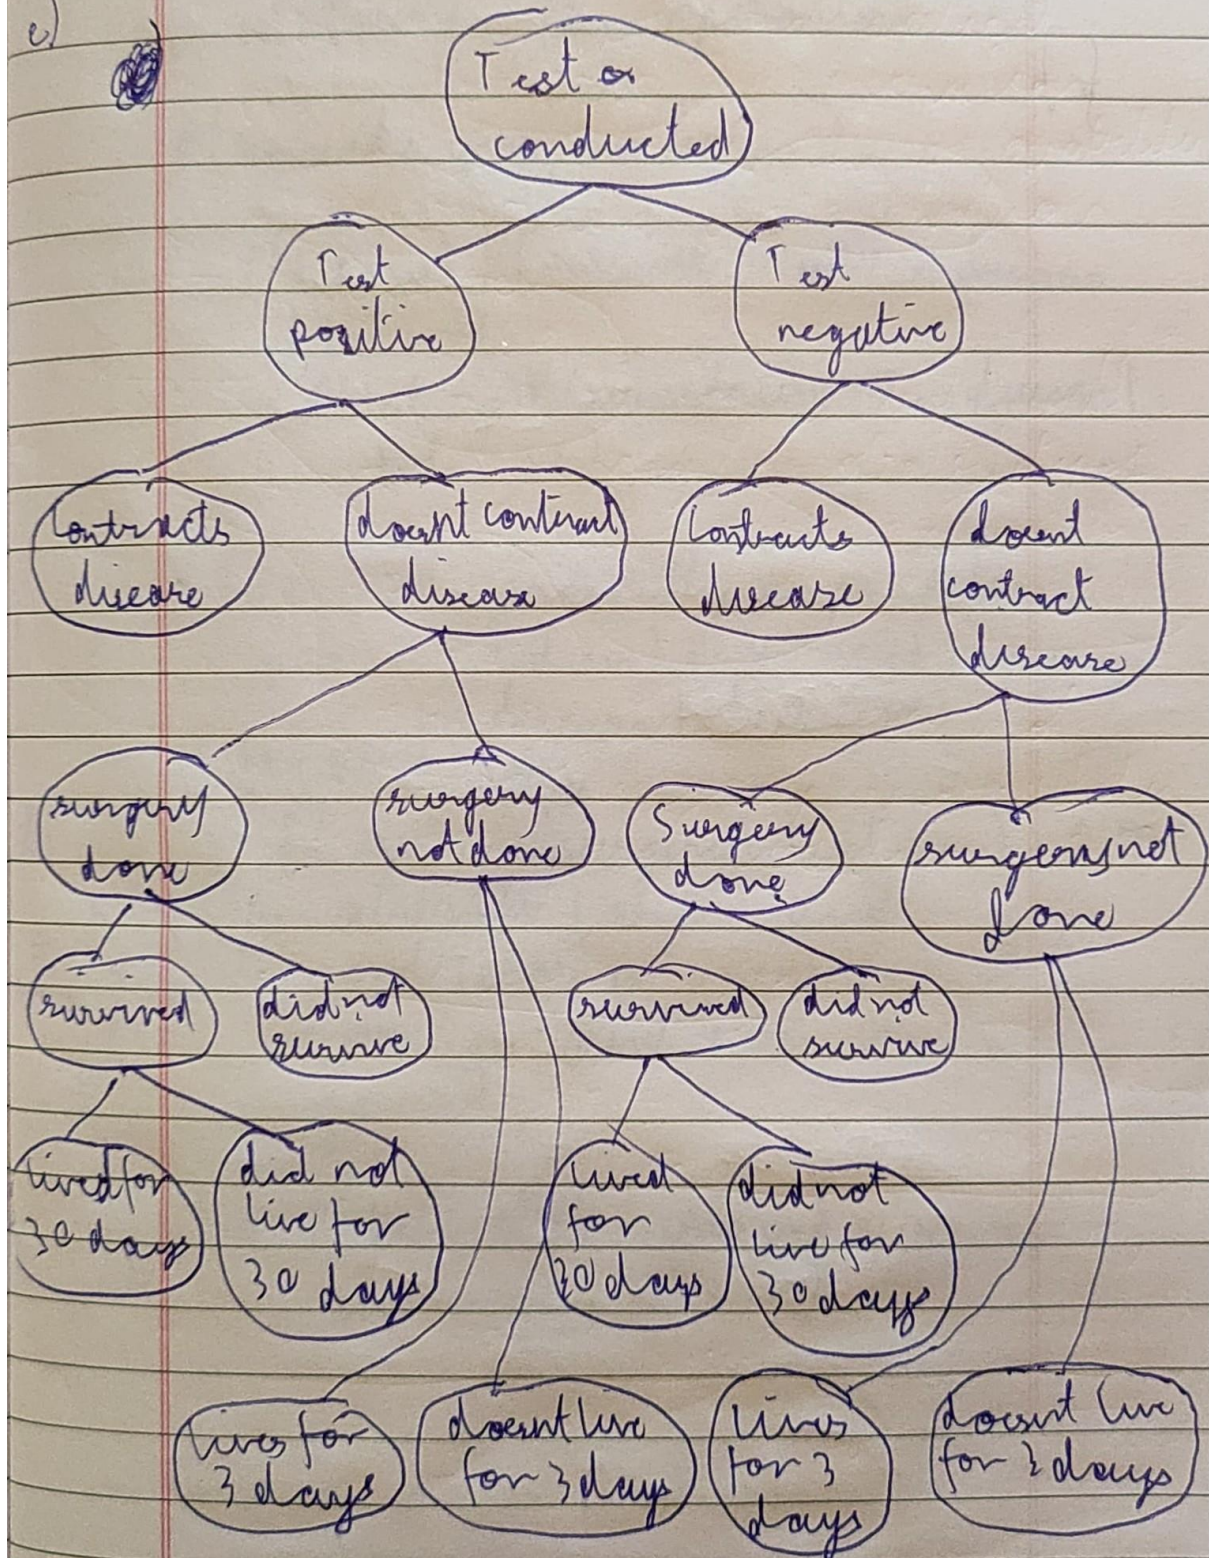 e)
Test
conducted
Test
positive
Test
negative
Contracts
disease
doesnt contract
disease
Contracts
disease
doesnt
contract
disease
surgery
done
surgery
not done
Surgery
done
surgery not
done
survived
did not
survive
survived
did not
survive
lived for
30 days
did not
live for
30 days
lived
for
30 days
did not
live for
30 days
lives for
3 days
doesnt live
for 3 days
lives
for 3
days
doesnt live
for 3 days